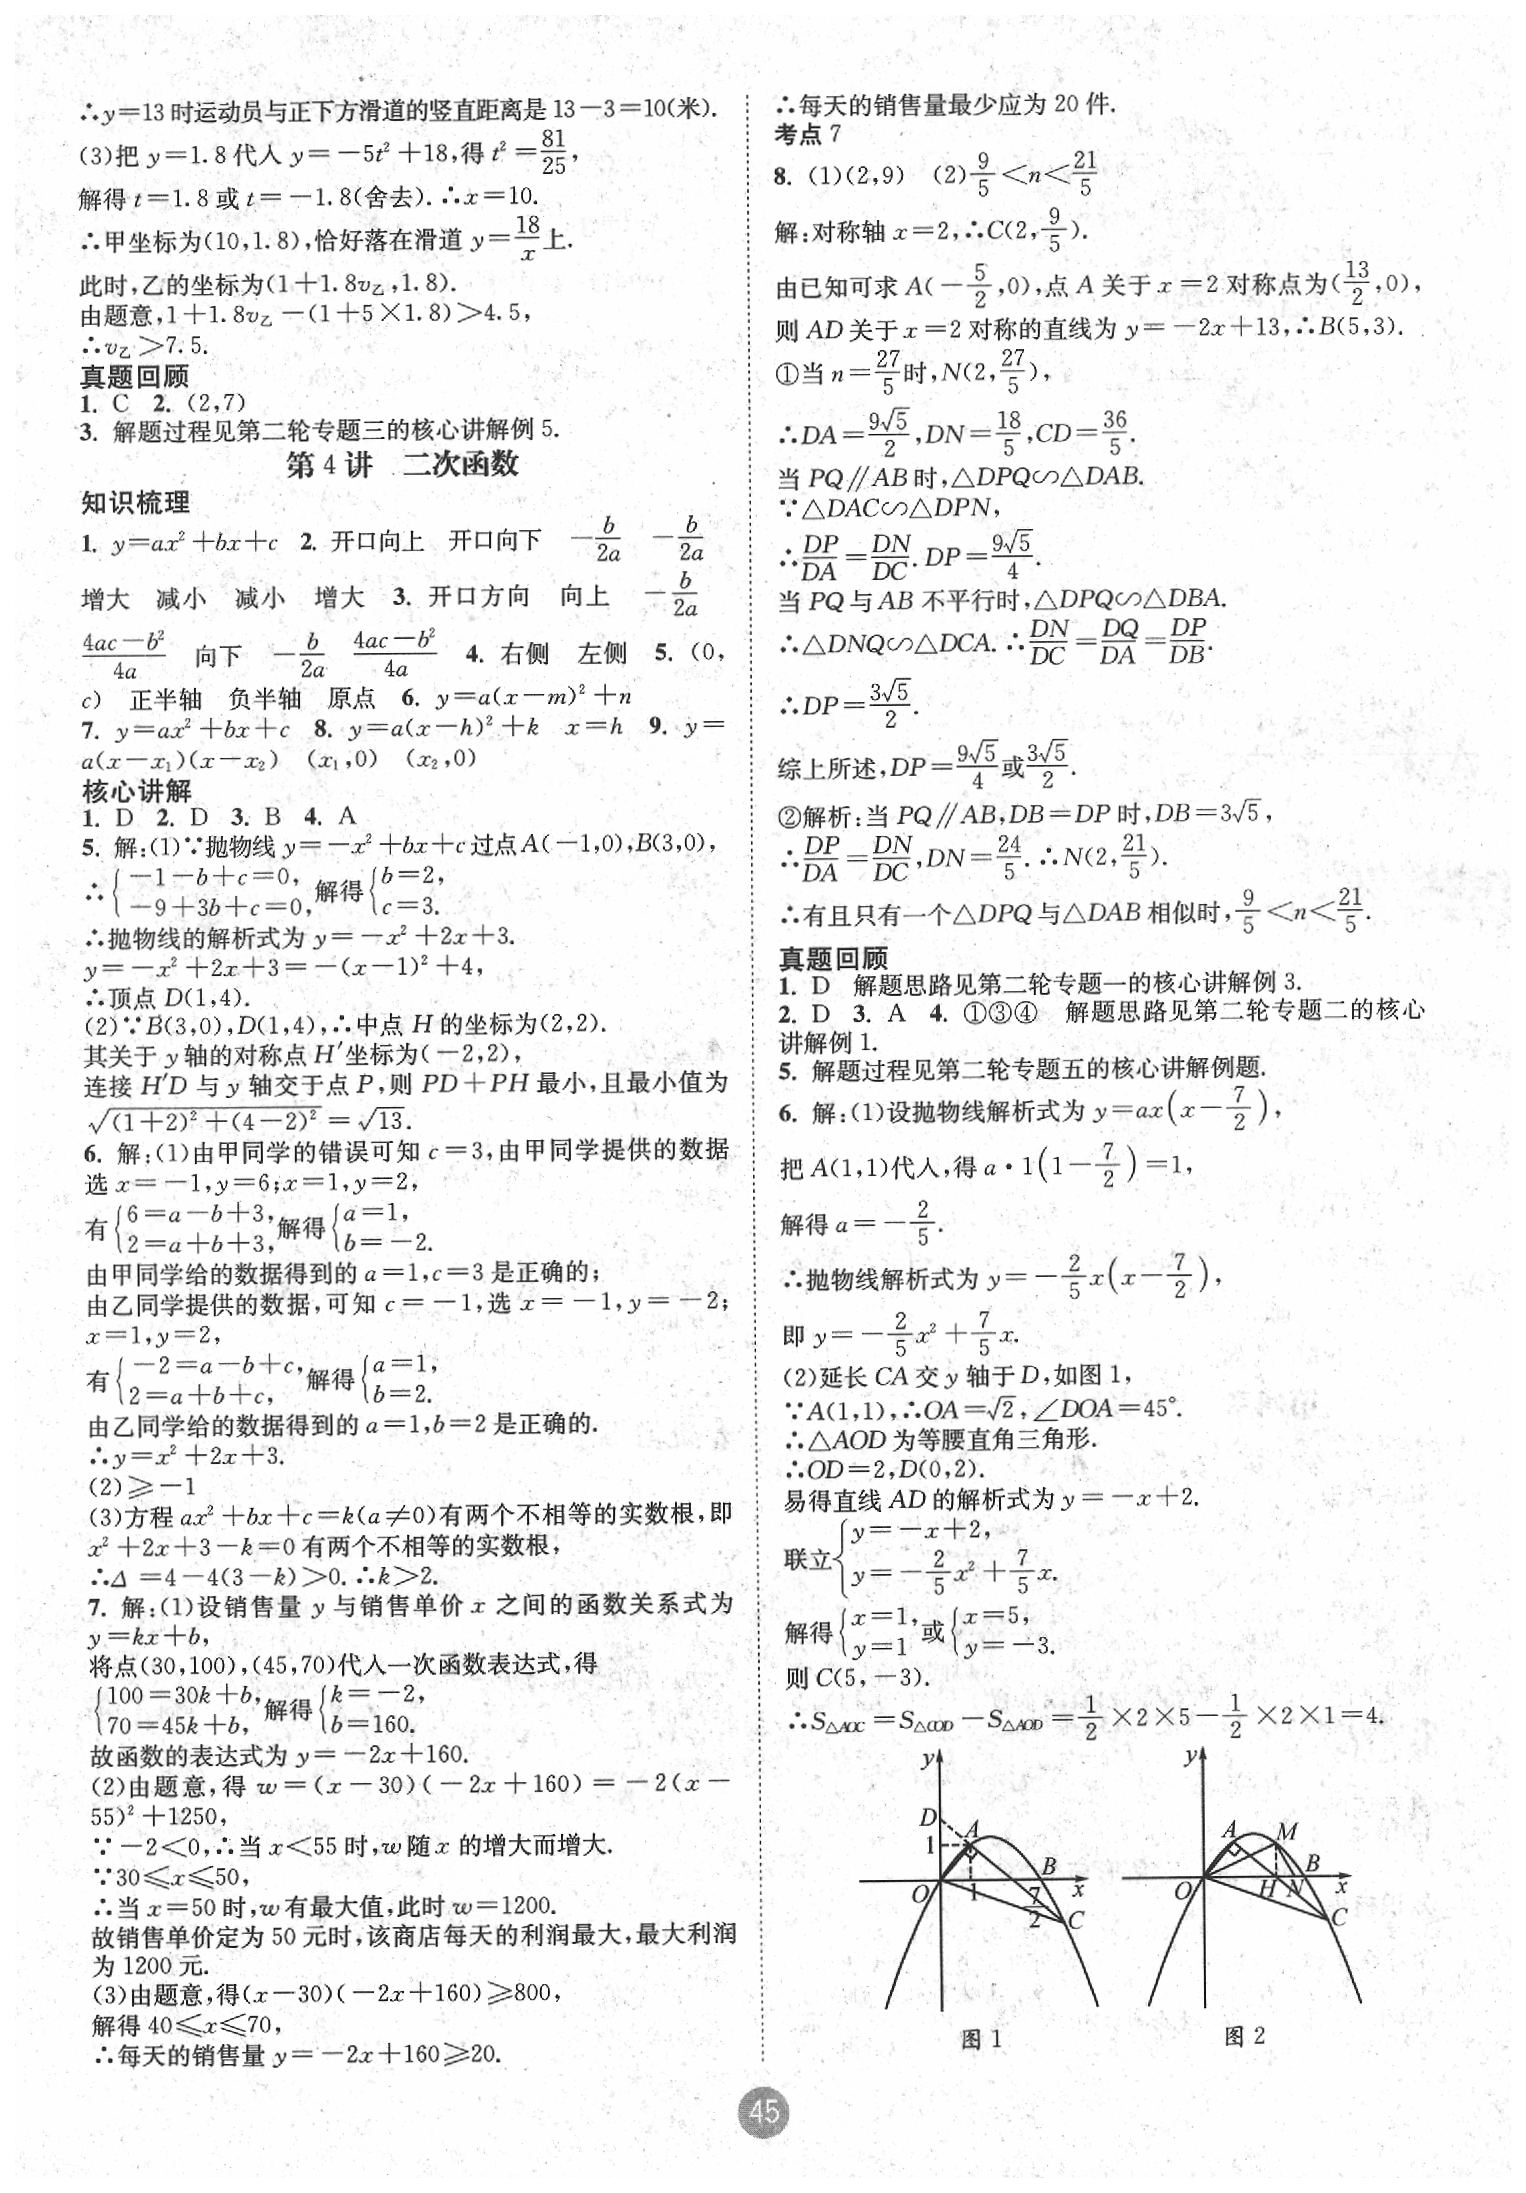 ∴y=13时运动员与正下方滑道的竖直距离是13-3=10(米).
(3)把y=1.8代入y=-5t²+18,得t²=81/25,
解得t=1.8或t=-1.8(舍去).∴x=10.
∴甲坐标为(10,1.8),恰好落在滑道y=18/x上.
此时,乙的坐标为(1+1.8v乙,1.8).
由题意,1+1.8v乙-(1+5×1.8)>4.5,
∴v乙>7.5.
真题回顾
1. C 2. (2,7)
3. 解题过程见第二轮专题三的核心讲解例5.
第4讲 二次函数
知识梳理
1. y=ax²+bx+c 2. 开口向上 开口向下 -b/2a -b/2a
增大 减小 减小 增大 3. 开口方向 向上 -b/2a
(4ac-b²)/4a 向下 -b/2a (4ac-b²)/4a 4. 右侧 左侧 5. (0,
c) 正半轴 负半轴 原点 6. y=a(x-m)²+n
7. y=ax²+bx+c 8. y=a(x-h)²+k x=h 9. y=
a(x-x₁)(x-x₂) (x₁,0) (x₂,0)
核心讲解
1. D 2. D 3. B 4. A
5. 解:(1)∵抛物线y=-x²+bx+c过点A(-1,0),B(3,0),
∴{-1-b+c=0, -9+3b+c=0,解得{b=2, c=3.
∴抛物线的解析式为y=-x²+2x+3.
y=-x²+2x+3=-(x-1)²+4,
∴顶点D(1,4).
(2)∵B(3,0),D(1,4),∴中点H的坐标为(2,2).
其关于y轴的对称点H′坐标为(-2,2),
连接H′D与y轴交于点P,则PD+PH最小,且最小值为
√((1+2)²+(4-2)²)=√13.
6. 解:(1)由甲同学的错误可知c=3,由甲同学提供的数据
选x=-1,y=6;x=1,y=2,
有{6=a-b+3, 2=a+b+3,解得{a=1, b=-2.
由甲同学给的数据得到的a=1,c=3是正确的;
由乙同学提供的数据,可知c=-1,选x=-1,y=-2;
x=1,y=2,
有{-2=a-b+c, 2=a+b+c,解得{a=1, b=2.
由乙同学给的数据得到的a=1,b=2是正确的.
∴y=x²+2x+3.
(2)≥-1
(3)方程ax²+bx+c=k(a≠0)有两个不相等的实数根,即
x²+2x+3-k=0有两个不相等的实数根,
∴Δ=4-4(3-k)>0.∴k>2.
7. 解:(1)设销售量y与销售单价x之间的函数关系式为
y=kx+b,
将点(30,100),(45,70)代入一次函数表达式,得
{100=30k+b, 70=45k+b,解得{k=-2, b=160.
故函数的表达式为y=-2x+160.
(2)由题意,得w=(x-30)(-2x+160)=-2(x-
55)²+1250,
∵-2<0,∴当x<55时,w随x的增大而增大.
∵30≤x≤50,
∴当x=50时,w有最大值,此时w=1200.
故销售单价定为50元时,该商店每天的利润最大,最大利润
为1200元.
(3)由题意,得(x-30)(-2x+160)≥800,
解得40≤x≤70,
∴每天的销售量y=-2x+160≥20.
∴每天的销售量最少应为20件.
考点7
8. (1)(2,9) (2)9/5<n<21/5
解:对称轴x=2,∴C(2,9/5).
由已知可求A(-5/2,0),点A关于x=2对称点为(13/2,0),
则AD关于x=2对称的直线为y=-2x+13,∴B(5,3).
①当n=27/5时,N(2,27/5),
∴DA=9√5/2,DN=18/5,CD=36/5.
当PQ∥AB时,△DPQ∽△DAB.
∵△DAC∽△DPN,
∴DP/DA=DN/DC.DP=9√5/4.
当PQ与AB不平行时,△DPQ∽△DBA.
∴△DNQ∽△DCA.∴DN/DC=DQ/DA=DP/DB.
∴DP=3√5/2.
综上所述,DP=9√5/4或3√5/2.
②解析:当PQ∥AB,DB=DP时,DB=3√5,
∴DP/DA=DN/DC,DN=24/5.∴N(2,21/5).
∴有且只有一个△DPQ与△DAB相似时,9/5<n<21/5.
真题回顾
1. D 解题思路见第二轮专题一的核心讲解例3.
2. D 3. A 4. ①③④ 解题思路见第二轮专题二的核心
讲解例1.
5. 解题过程见第二轮专题五的核心讲解例题.
6. 解:(1)设抛物线解析式为y=ax(x-7/2),
把A(1,1)代入,得a·1(1-7/2)=1,
解得a=-2/5.
∴抛物线解析式为y=-2/5x(x-7/2),
即y=-2/5x²+7/5x.
(2)延长CA交y轴于D,如图1,
∵A(1,1),∴OA=√2,∠DOA=45°.
∴△AOD为等腰直角三角形.
∴OD=2,D(0,2).
易得直线AD的解析式为y=-x+2.
联立{y=-x+2, y=-2/5x²+7/5x.
解得{x=1, y=1或{x=5, y=-3.
则C(5,-3).
∴S△AOC=S△COD-S△AOD=1/2×2×5-1/2×2×1=4.
y D A 1 B O 1 7/2 x C
图1
y A M B O H N x C
图2
45